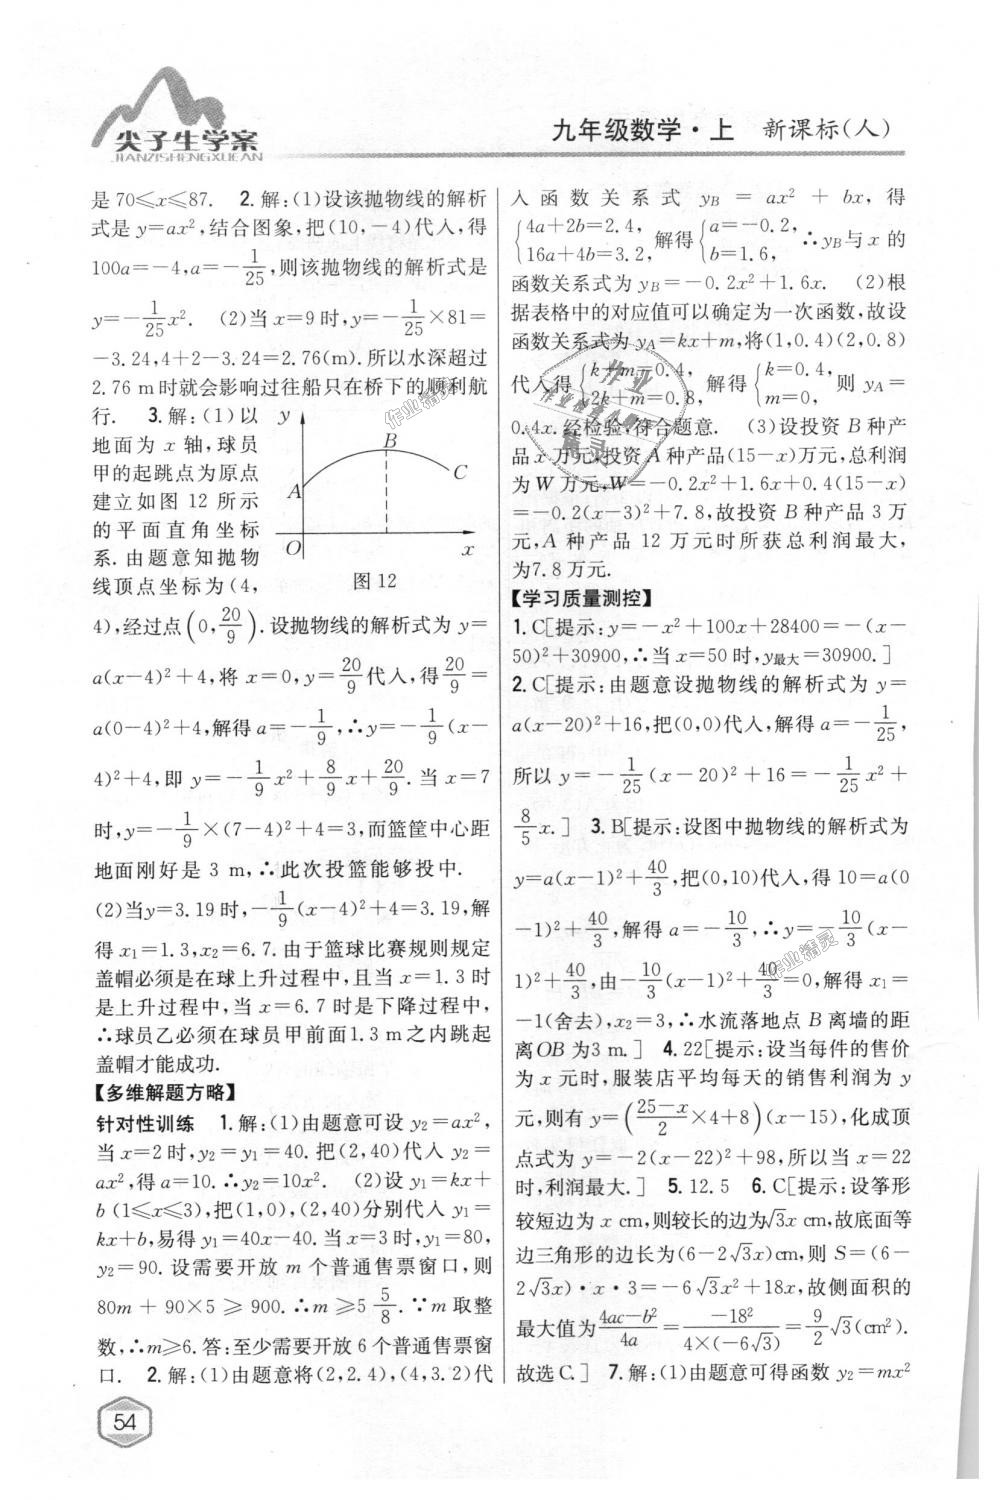 尖子生学案
JIANZISHENGXUEAN
九年级数学·上 新课标(人)
是 70≤x≤87. 2. 解:(1)设该抛物线的解析
式是 y=ax²,结合图象,把(10,-4)代入,得
100a=-4,a=-1/25,则该抛物线的解析式是
y=-1/25x². (2)当 x=9 时,y=-1/25×81=
-3.24,4+2-3.24=2.76(m). 所以水深超过
2.76 m时就会影响过往船只在桥下的顺利航
行. 3. 解:(1) 以
地面为 x 轴,球员
甲的起跳点为原点
建立如图 12 所示
的平面直角坐标
系. 由题意知抛物
线顶点坐标为(4,
y
B
A
C
O
x
图 12
4),经过点(0,20/9). 设抛物线的解析式为 y=
a(x-4)²+4,将 x=0,y=20/9代入,得20/9=
a(0-4)²+4,解得 a=-1/9,∴y=-1/9(x-
4)²+4,即 y=-1/9x²+8/9x+20/9. 当 x=7
时,y=-1/9×(7-4)²+4=3,而篮筐中心距
地面刚好是 3 m,∴此次投篮能够投中.
(2)当y=3.19 时,-1/9(x-4)²+4=3.19,解
得 x₁=1.3,x₂=6.7. 由于篮球比赛规则规定
盖帽必须是在球上升过程中,且当 x=1.3 时
是上升过程中,当 x=6.7 时是下降过程中,
∴球员乙必须在球员甲前面1.3 m之内跳起
盖帽才能成功.
【多维解题方略】
针对性训练 1. 解:(1)由题意可设 y₂=ax²,
当 x=2 时,y₂=y₁=40. 把(2,40)代入 y₂=
ax²,得 a=10. ∴y₂=10x². (2)设 y₁=kx+
b (1≤x≤3),把(1,0),(2,40)分别代入 y₁=
kx+b,易得 y₁=40x-40. 当 x=3 时,y₁=80,
y₂=90. 设需要开放 m 个普通售票窗口,则
80m + 90×5 ≥ 900. ∴m ≥5 5/8. ∵m 取整
数,∴m≥6. 答:至少需要开放 6 个普通售票窗
口. 2. 解:(1)由题意将(2,2.4),(4,3.2)代
入函数关系式 yB = ax² + bx,得
{4a+2b=2.4, 16a+4b=3.2, 解得{a=-0.2, b=1.6, ∴yB与 x 的
函数关系式为 yB=-0.2x²+1.6x. (2)根
据表格中的对应值可以确定为一次函数,故设
函数关系式为 yA=kx+m,将(1,0.4)(2,0.8)
代入得{k+m=0.4, 2k+m=0.8, 解得{k=0.4, m=0, 则 yA=
0.4x. 经检验,符合题意. (3)设投资 B 种产
品 x 万元,投资 A 种产品(15-x)万元,总利润
为 W 万元,W=-0.2x²+1.6x+0.4(15-x)
=-0.2(x-3)²+7.8,故投资 B 种产品 3 万
元,A 种产品 12 万元时所获总利润最大,
为7.8 万元.
【学习质量测控】
1. C[提示:y=-x²+100x+28400=-(x-
50)²+30900,∴当 x=50 时,y最大=30900. ]
2. C[提示:由题意设抛物线的解析式为 y=
a(x-20)²+16,把(0,0)代入,解得 a=-1/25,
所以 y=-1/25(x-20)²+16=-1/25x²+
8/5x. ] 3. B[提示:设图中抛物线的解析式为
y=a(x-1)²+40/3,把(0,10)代入,得 10=a(0
-1)²+40/3,解得 a=-10/3,∴y=-10/3(x-
1)²+40/3,由-10/3(x-1)²+40/3=0,解得 x₁=
-1(舍去),x₂=3,∴水流落地点 B 离墙的距
离OB 为3 m. ] 4. 22[提示:设当每件的售价
为 x 元时,服装店平均每天的销售利润为 y
元,则有 y=(25-x/2×4+8)(x-15),化成顶
点式为 y=-2(x-22)²+98,所以当 x=22
时,利润最大. ] 5. 12.5 6. C[提示:设筝形
较短边为 x cm,则较长的边为√3x cm,故底面等
边三角形的边长为(6-2√3x)cm,则 S=(6-
2√3x)·x·3=-6√3x²+18x,故侧面积的
最大值为4ac-b²/4a=-18²/4×(-6√3)=9/2√3(cm²).
故选C. ] 7. 解:(1)由题意可得函数 y₂=mx²
54
作业精灵
作业精灵
作业
作业检查小帮手
精灵